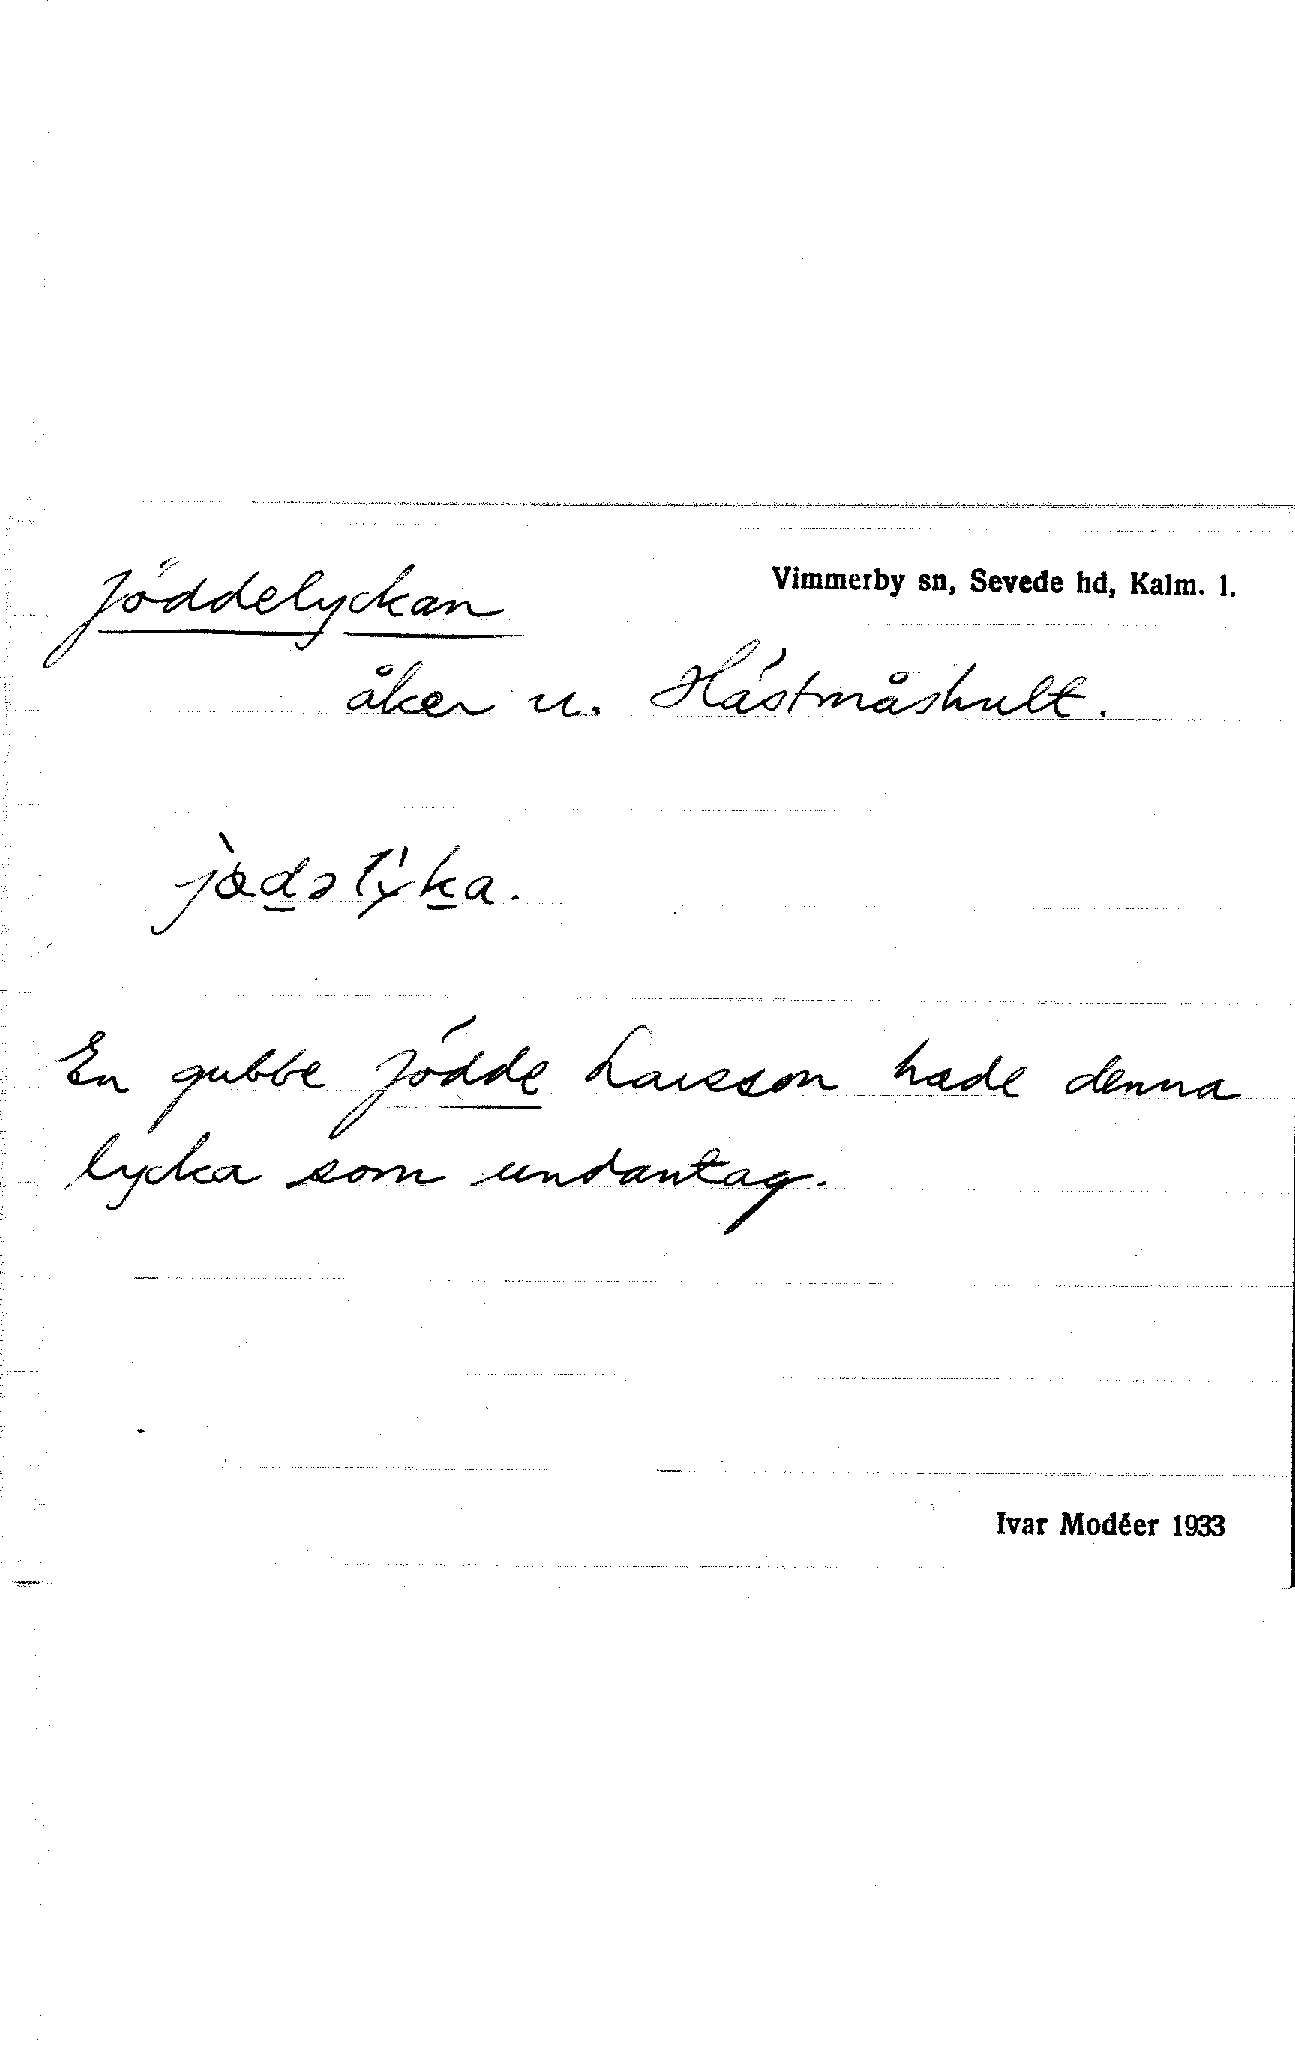 Jöddelyckan
Vimmerby sn, Sevede hd, Kalm. l.
åker u. Hästmåshult.
jødəlýka.
En gubbe Jödde Larsson hade denna
lycka som undantag.
Ivar Modéer 1933